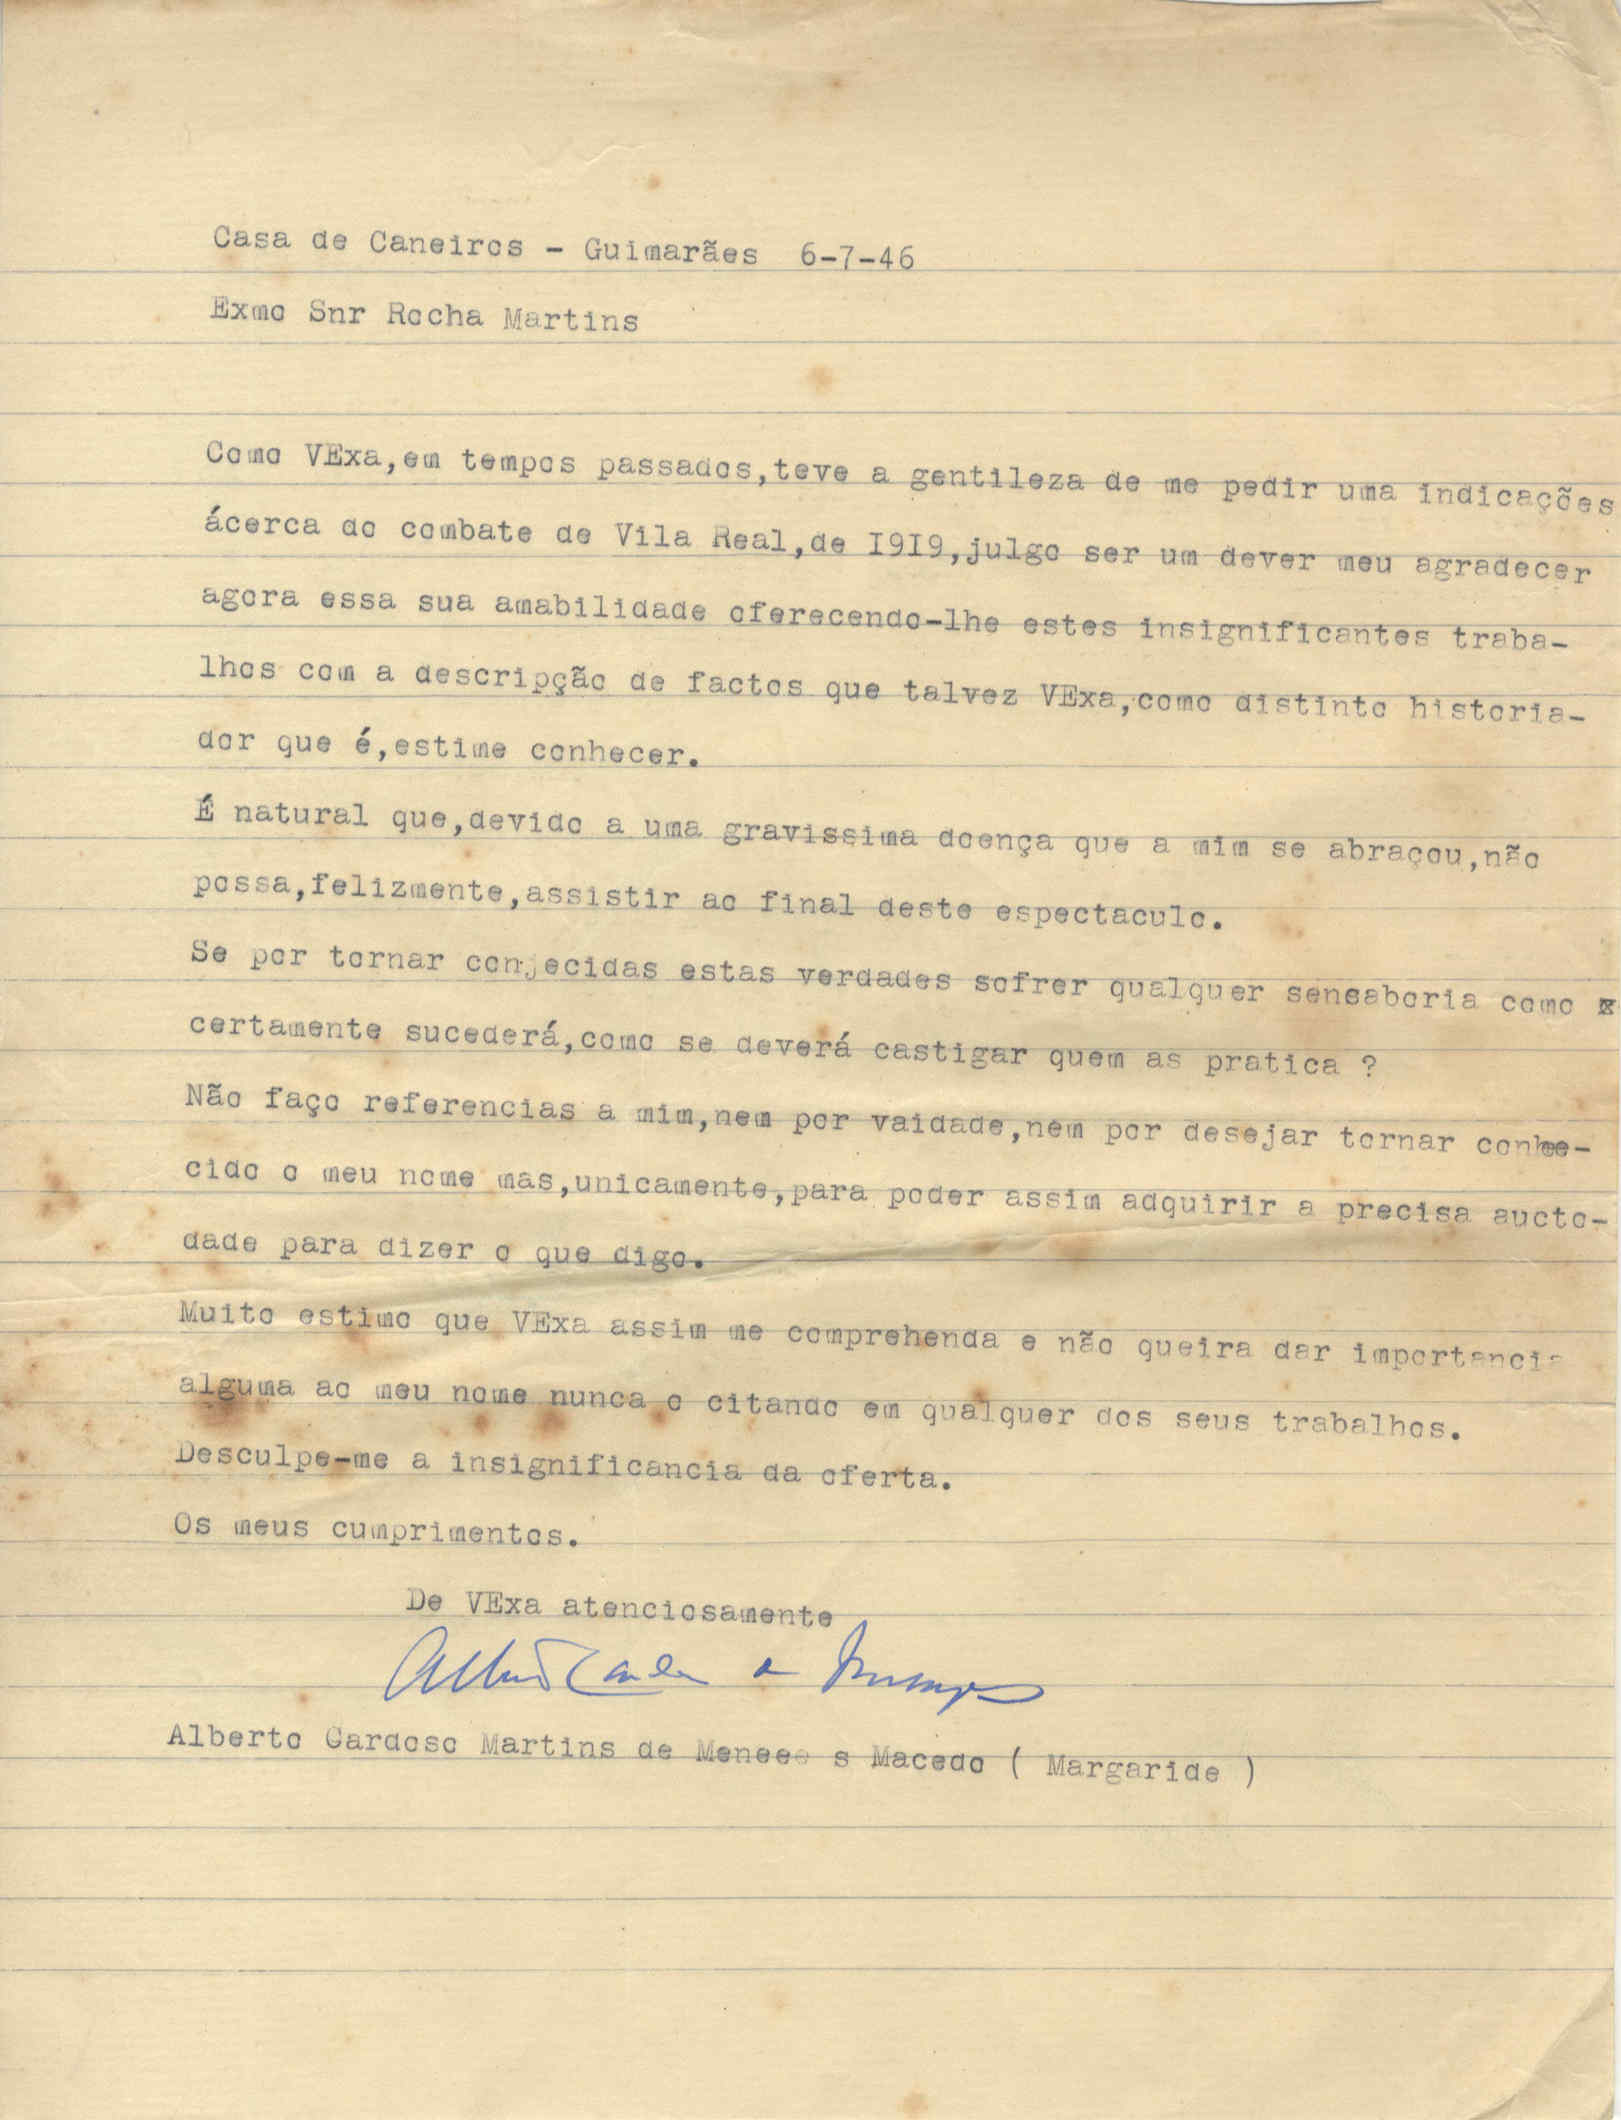 Casa de Caneiros - Guimarães 6-7-46
Exmo Snr Rocha Martins
Como VExa,em tempos passados,teve a gentileza de me pedir uma indicações
ácerca do combate de Vila Real,de I9I9,julgo ser um dever meu agradecer
agora essa sua amabilidade oferecendo-lhe estes insignificantes traba-
lhos com a descripção de factos que talvez VExa,como distinto historia-
dor que é,estime conhecer.
É natural que,devido a uma gravissima doença que a mim se abraçou,não
possa,felizmente,assistir ao final deste espectaculo.
Se por tornar conjecidas estas verdades sofrer qualquer sensaboria como
certamente sucederá,como se deverá castigar quem as pratica ?
Não faço referencias a mim,nem por vaidade,nem por desejar tornar conhe-
cido o meu nome mas,unicamente,para poder assim adquirir a precisa aucto-
dade para dizer o que digo.
Muito estimo que VExa assim me comprehenda e não queira dar importancia
alguma ao meu nome nunca o citando em qualquer dos seus trabalhos.
Desculpe-me a insignificancia da oferta.
Os meus cumprimentos.
De VExa atenciosamente
Alberto Cardoso Martins de Menees s Macedo ( Margaride )